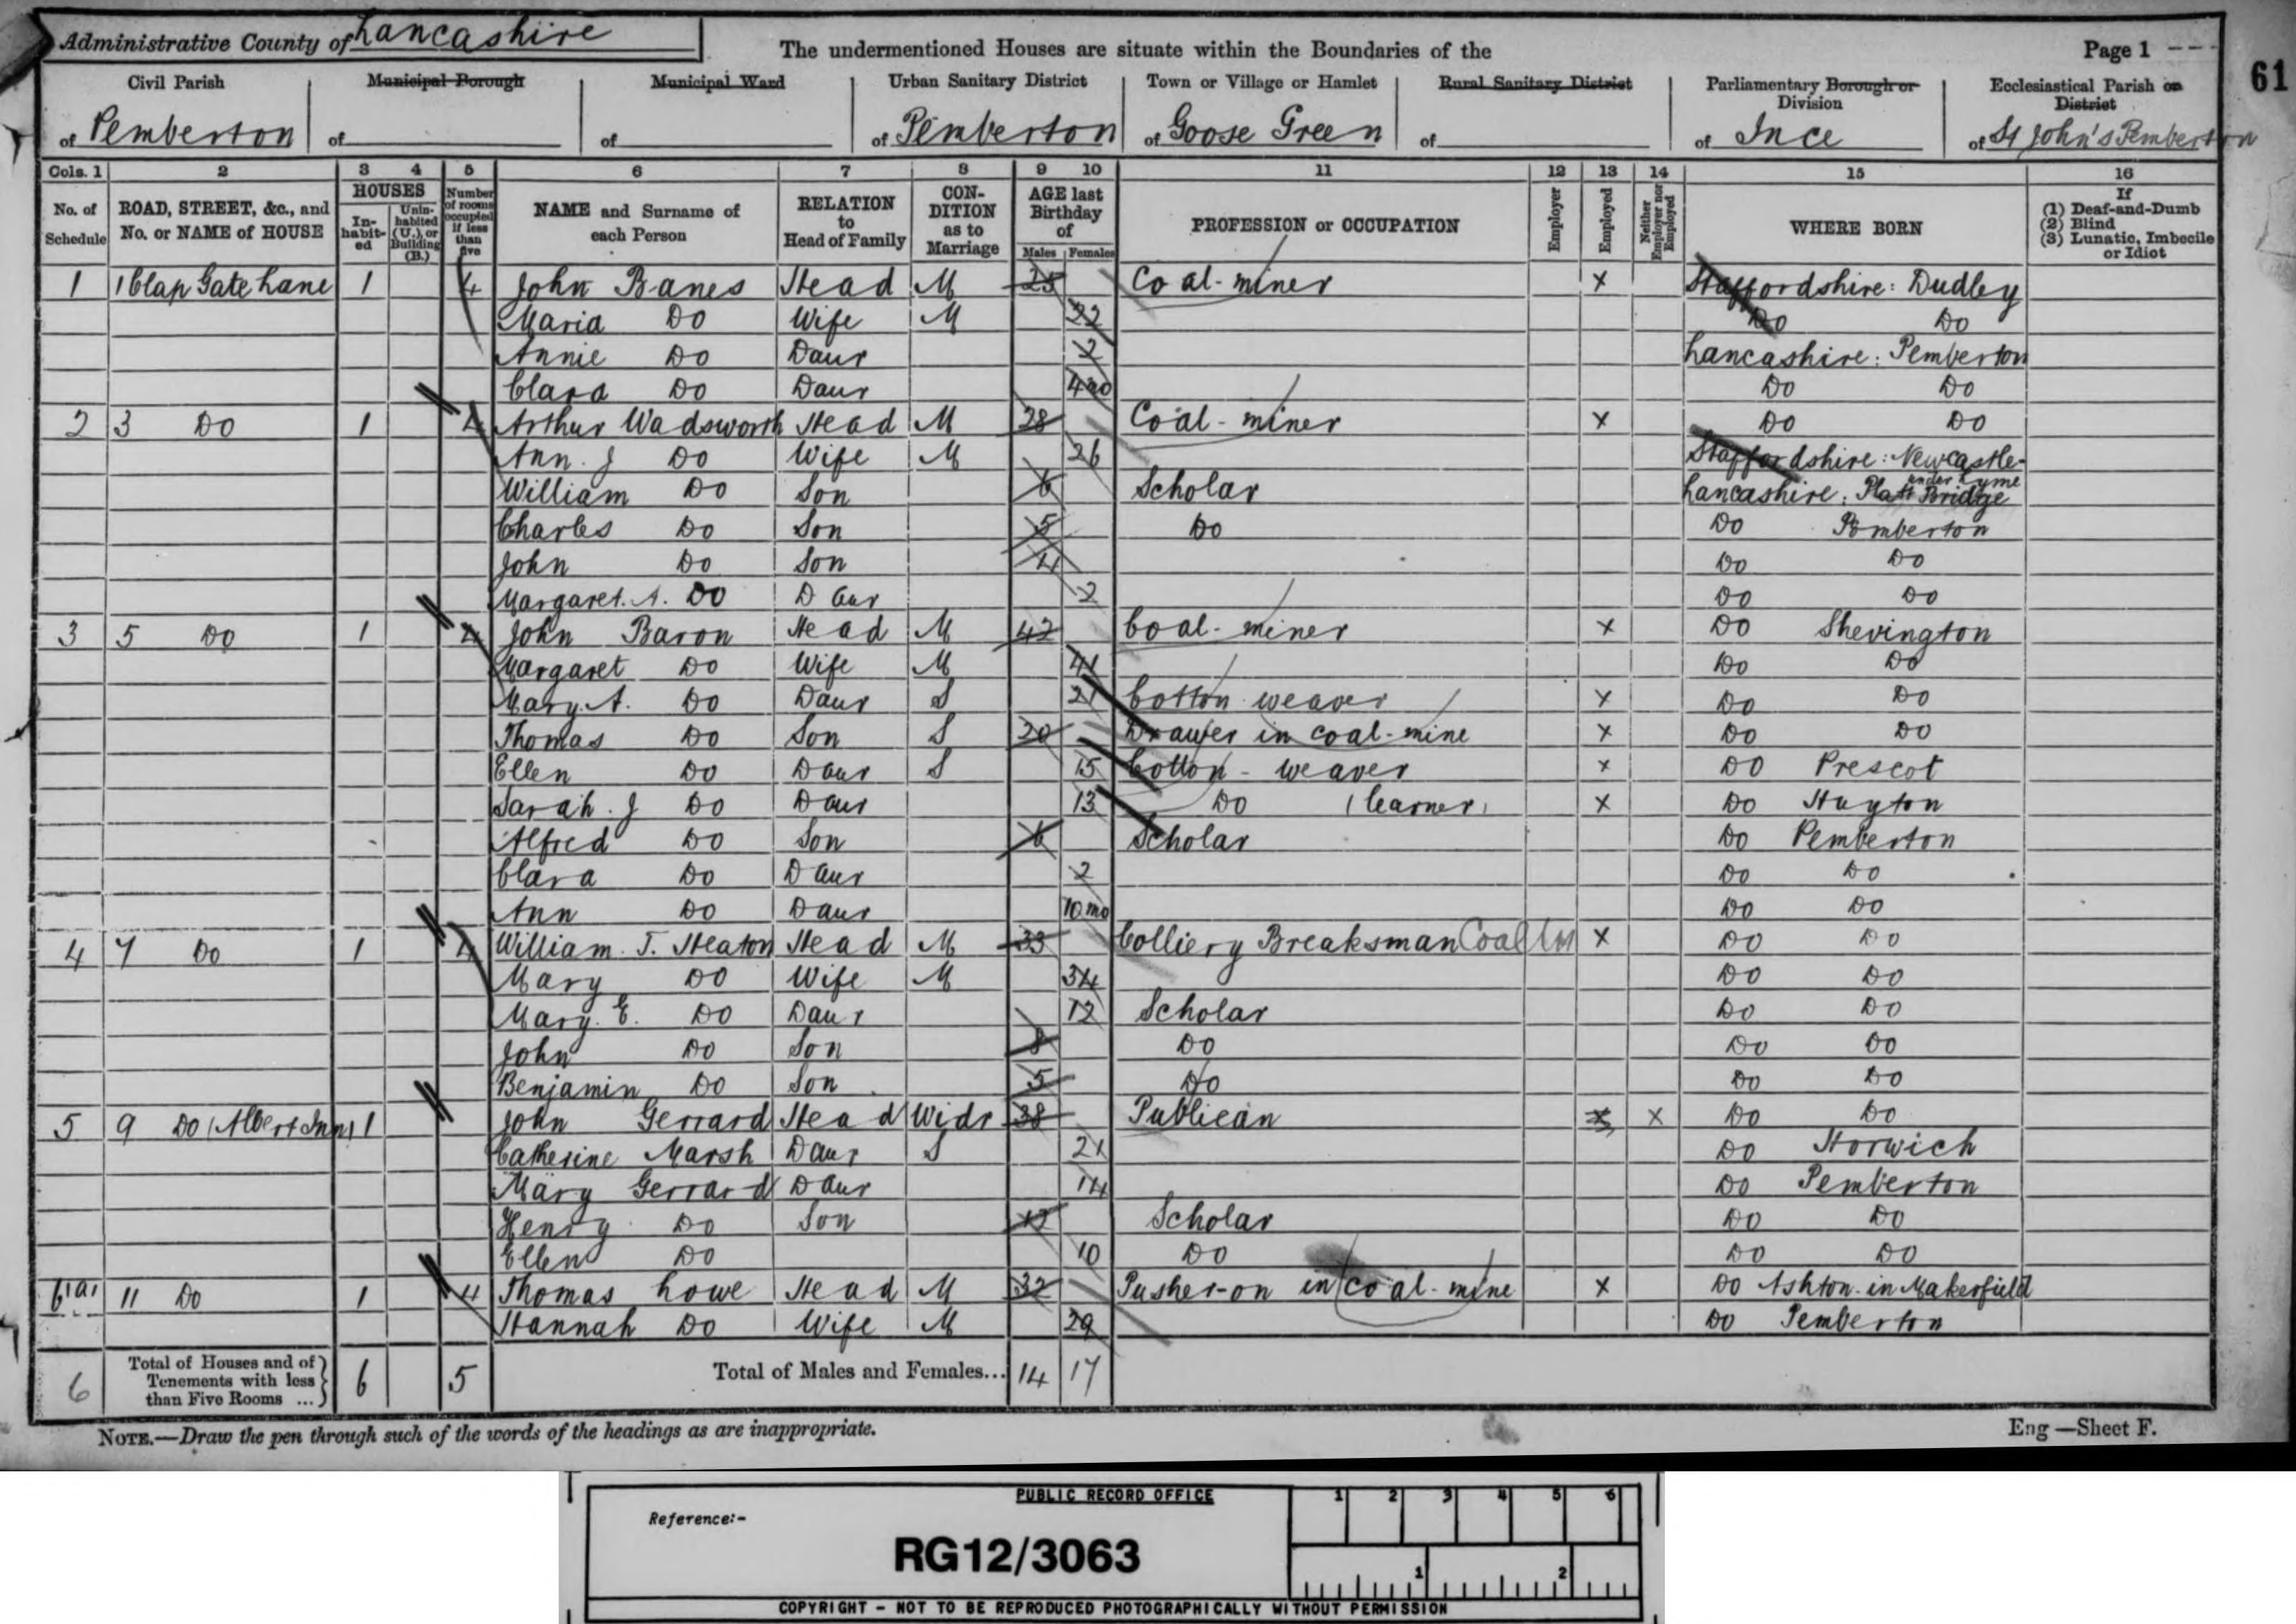 Administrative County of Lancashire
The undermentioned Houses are situate within the Boundaries of the
Page 1
61
Civil Parish Municipal Borough Municipal Ward Urban Sanitary District Town or Village or Hamlet Rural Sanitary District Parliamentary Borough or Division Ecclesiastical Parish or District
of Pemberton of of of Pemberton of Goose Green of of Ince of St John's Pemberton
Cols. 1 2 3 4 5 6 7 8 9 10 11 12 13 14 15 16
No. of Schedule ROAD, STREET, &c., and No. or NAME of HOUSE HOUSES Inhabited Uninhabited (U.), or Building (B.) Number of rooms occupied if less than five NAME and Surname of each Person RELATION to Head of Family CONDITION as to Marriage AGE last Birthday of Males Females PROFESSION or OCCUPATION Employer Employed Neither Employer nor Employed WHERE BORN If (1) Deaf-and-Dumb (2) Blind (3) Lunatic, Imbecile or Idiot
1 1 Clap Gate Lane 1 4 John Banes Head M 25 Coal-miner X Staffordshire: Dudley
Maria Do Wife M 22 Do Do
Annie Do Daur 2 Lancashire: Pemberton
Clara Do Daur 4 mo Do Do
2 3 Do 1 4 Arthur Wadsworth Head M 28 Coal-miner X Do Do
Ann. J Do Wife M 26 Staffordshire: Newcastle-under Lyme
William Do Son 6 Scholar Lancashire: Platt Bridge
Charles Do Son 5 Do Do Pemberton
John Do Son 4 Do Do
Margaret. A. Do Daur 2 Do Do
3 5 Do 1 4 John Baron Head M 42 Coal-miner X Do Shevington
Margaret Do Wife M 41 Do Do
Mary. A. Do Daur S 21 Cotton weaver X Do Do
Thomas Do Son S 20 Drawer in coal-mine X Do Do
Ellen Do Daur S 15 Cotton-weaver X Do Prescot
Sarah. J Do Daur 13 Do (learner) X Do Huyton
Alfred Do Son 6 Scholar Do Pemberton
Clara Do Daur 2 Do Do
Ann Do Daur 10 mo Do Do
4 7 Do 1 4 William. T. Heaton Head M 33 Colliery Breaksman Coal X Do Do
Mary Do Wife M 34 Do Do
Mary. E. Do Daur 12 Scholar Do Do
John Do Son 8 Do Do Do
Benjamin Do Son 5 Do Do Do
5 9 Do (Albert Inn) 1 John Gerrard Head Widr 38 Publican X X Do Do
Catherine Marsh Daur S 21 Do Horwich
Mary Gerrard Daur 14 Do Pemberton
Henry Do Son 12 Scholar Do Do
Ellen Do 10 Do Do Do
6(a) 11 Do 1 4 Thomas Lowe Head M 32 Pusher-on in coal-mine X Do Ashton-in-Makerfield
Hannah Do Wife M 29 Do Pemberton
6 Total of Houses and of Tenements with less than Five Rooms ... 6 5 Total of Males and Females... 14 17
NOTE.—Draw the pen through such of the words of the headings as are inappropriate.
Eng—Sheet F.
PUBLIC RECORD OFFICE
1 2 3 4 5 6
Reference:-
RG12/3063
1 2
COPYRIGHT - NOT TO BE REPRODUCED PHOTOGRAPHICALLY WITHOUT PERMISSION